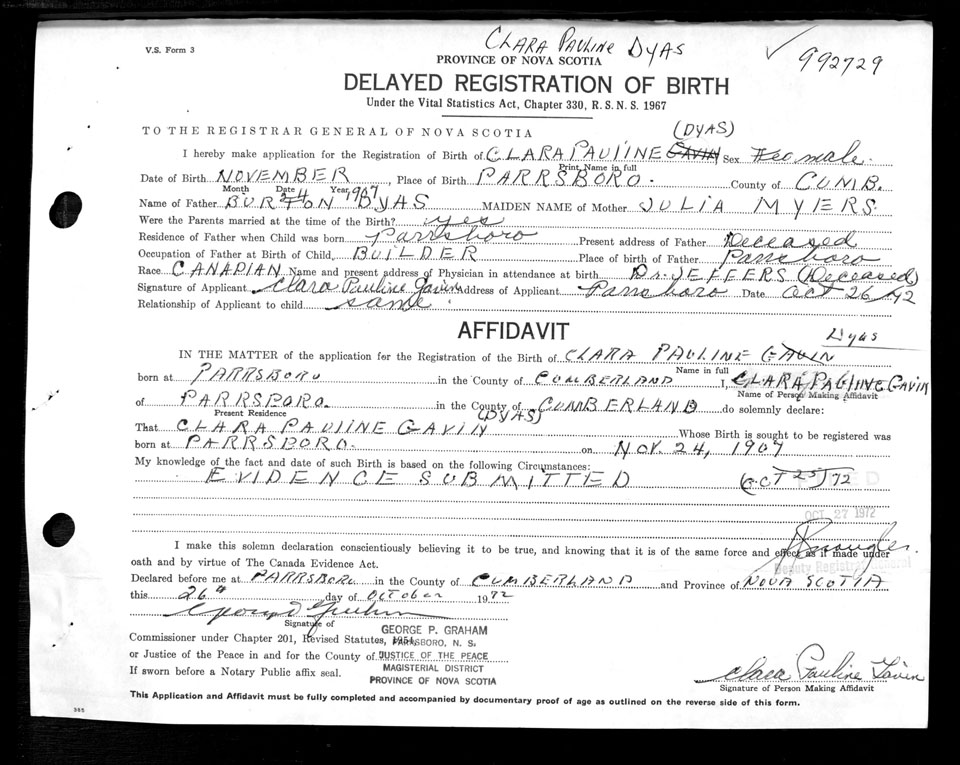 CLARA PAULINE DYAS
V.S. Form 3
PROVINCE OF NOVA SCOTIA
992729
DELAYED REGISTRATION OF BIRTH
Under the Vital Statistics Act, Chapter 330, R.S.N.S. 1967
(DYAS)
TO THE REGISTRAR GENERAL OF NOVA SCOTIA
I hereby make application for the Registration of Birth of CLARA PAULINE GAVIN Sex Female.
Print Name in full
Date of Birth NOVEMBER 24 1907, Place of Birth PARRSBORO. County of CUMB.
Month Date Year
Name of Father BURTON DYAS MAIDEN NAME of Mother JULIA MYERS
Were the Parents married at the time of the Birth? yes
Residence of Father when Child was born Parrsboro Present address of Father Deceased
Occupation of Father at Birth of Child BUILDER Place of birth of Father Parrsboro
Race CANADIAN Name and present address of Physician in attendance at birth Dr. JEFFERS (Deceased)
Signature of Applicant Clara Pauline Gavin Address of Applicant Parrsboro Date Oct 26/72
Relationship of Applicant to child same
AFFIDAVIT
Dyas
IN THE MATTER of the application for the Registration of the Birth of CLARA PAULINE GAVIN
Name in full
born at PARRSBORO in the County of CUMBERLAND I, CLARA PAULINE GAVIN
Name of Person Making Affidavit
of PARRSBORO. in the County of CUMBERLAND do solemnly declare:
Present Residence
(DYAS)
That CLARA PAULINE GAVIN Whose Birth is sought to be registered was
born at PARRSBORO. on NOV. 24, 1907
My knowledge of the fact and date of such Birth is based on the following Circumstances:
EVIDENCE SUBMITTED (OCT 25/72
OCT 27 1972
I make this solemn declaration conscientiously believing it to be true, and knowing that it is of the same force and effect as if made under
oath and by virtue of The Canada Evidence Act.
Deputy Registrar General
Declared before me at PARRSBORO in the County of CUMBERLAND and Province of NOVA SCOTIA
this 26th day of OCTOBER 1972
Signature of
GEORGE P. GRAHAM
Commissioner under Chapter 201, Revised Statutes, 1954,
PARRSBORO, N. S.
or Justice of the Peace in and for the County of JUSTICE OF THE PEACE
MAGISTERIAL DISTRICT
If sworn before a Notary Public affix seal.
PROVINCE OF NOVA SCOTIA
Clara Pauline Gavin
Signature of Person Making Affidavit
This Application and Affidavit must be fully completed and accompanied by documentary proof of age as outlined on the reverse side of this form.